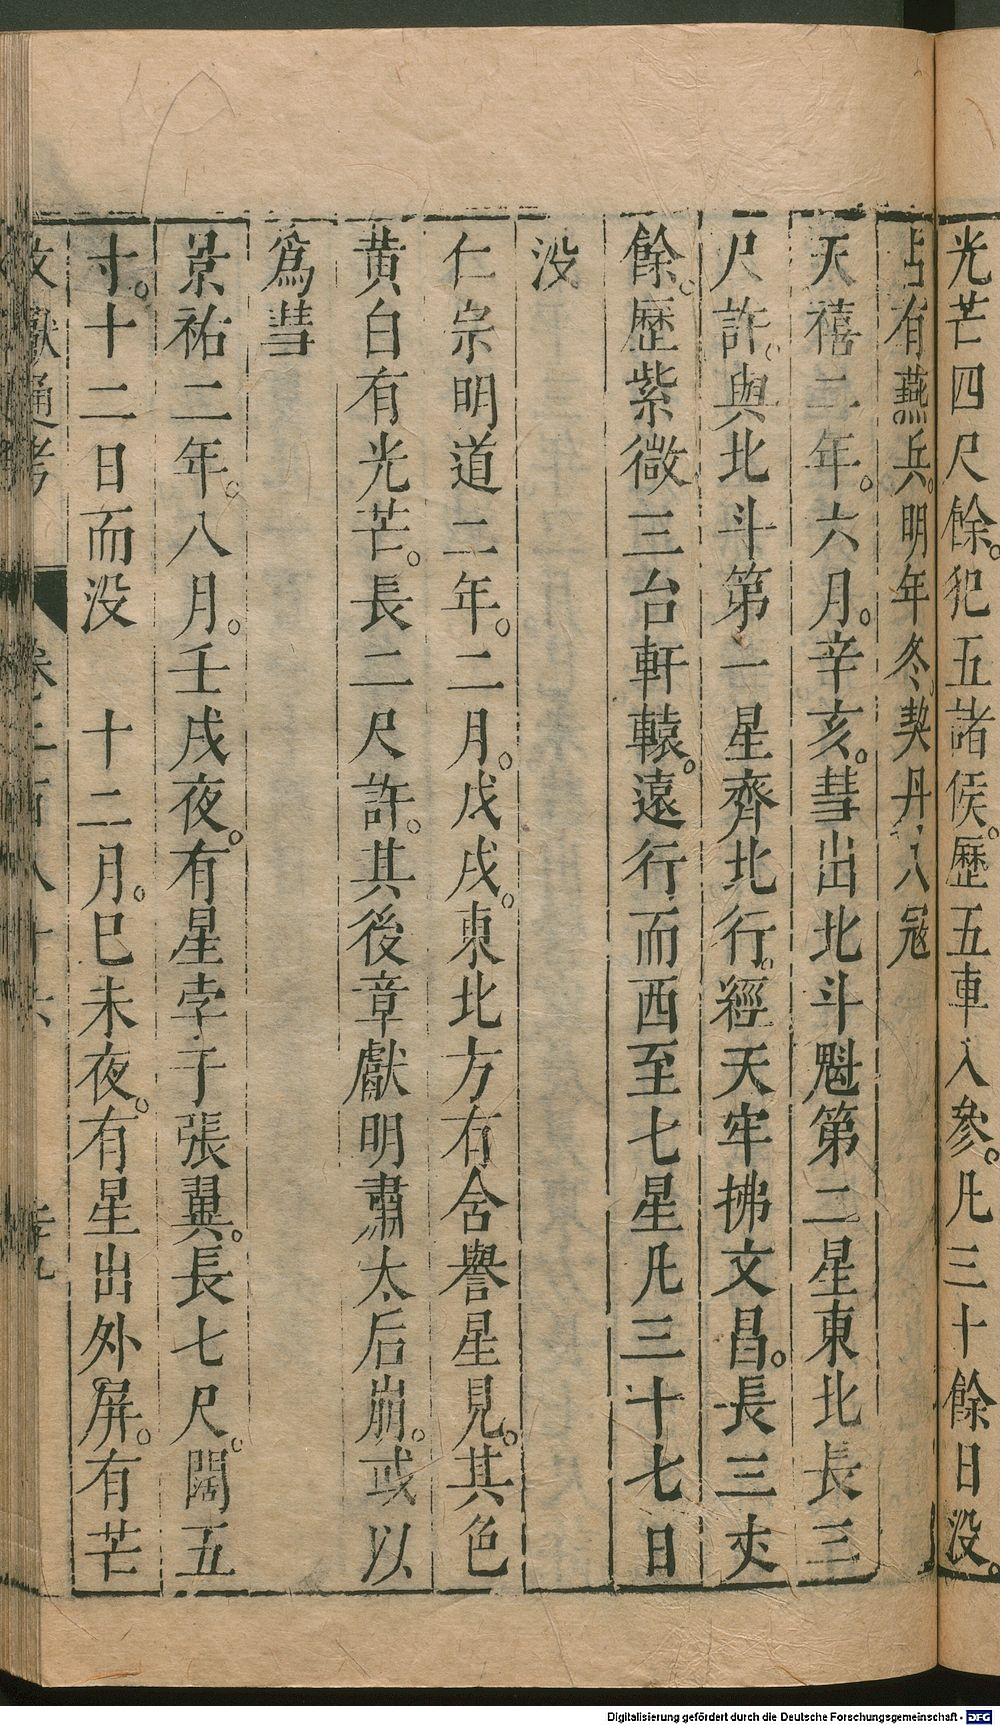 光芒四尺餘。犯五諸侯。歷五車入參。凡三十餘日没。
占有燕兵。明年冬契丹入冦
天禧二年。六月。辛亥。彗出北斗魁第二星東北長三
尺許。與北斗第一星齊北行。經天牢拂文昌。長三丈
餘。歷紫微三台軒轅。遠行而西至七星凡三十七日
没
仁宗明道二年。二月。戊戌。東北方有含譽星見。其色
黄白有光芒。長二尺許。其後章獻明肅太后崩。或以
爲彗
景祐二年。八月。壬戌夜。有星孛于張翼。長七尺。闊五
寸。十二日而没 十二月。巳未夜。有星出外屏。有芒
文獻通考 卷二百八十六
Digitalisierung gefördert durch die Deutsche Forschungsgemeinschaft - DFG